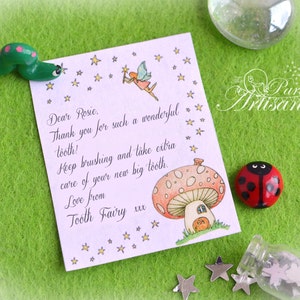 Dear Rosie,
Thank you for such a wonderful
tooth!
Keep brushing and take extra
care of your new big tooth.
Love from
Tooth Fairy xxx
Artisan